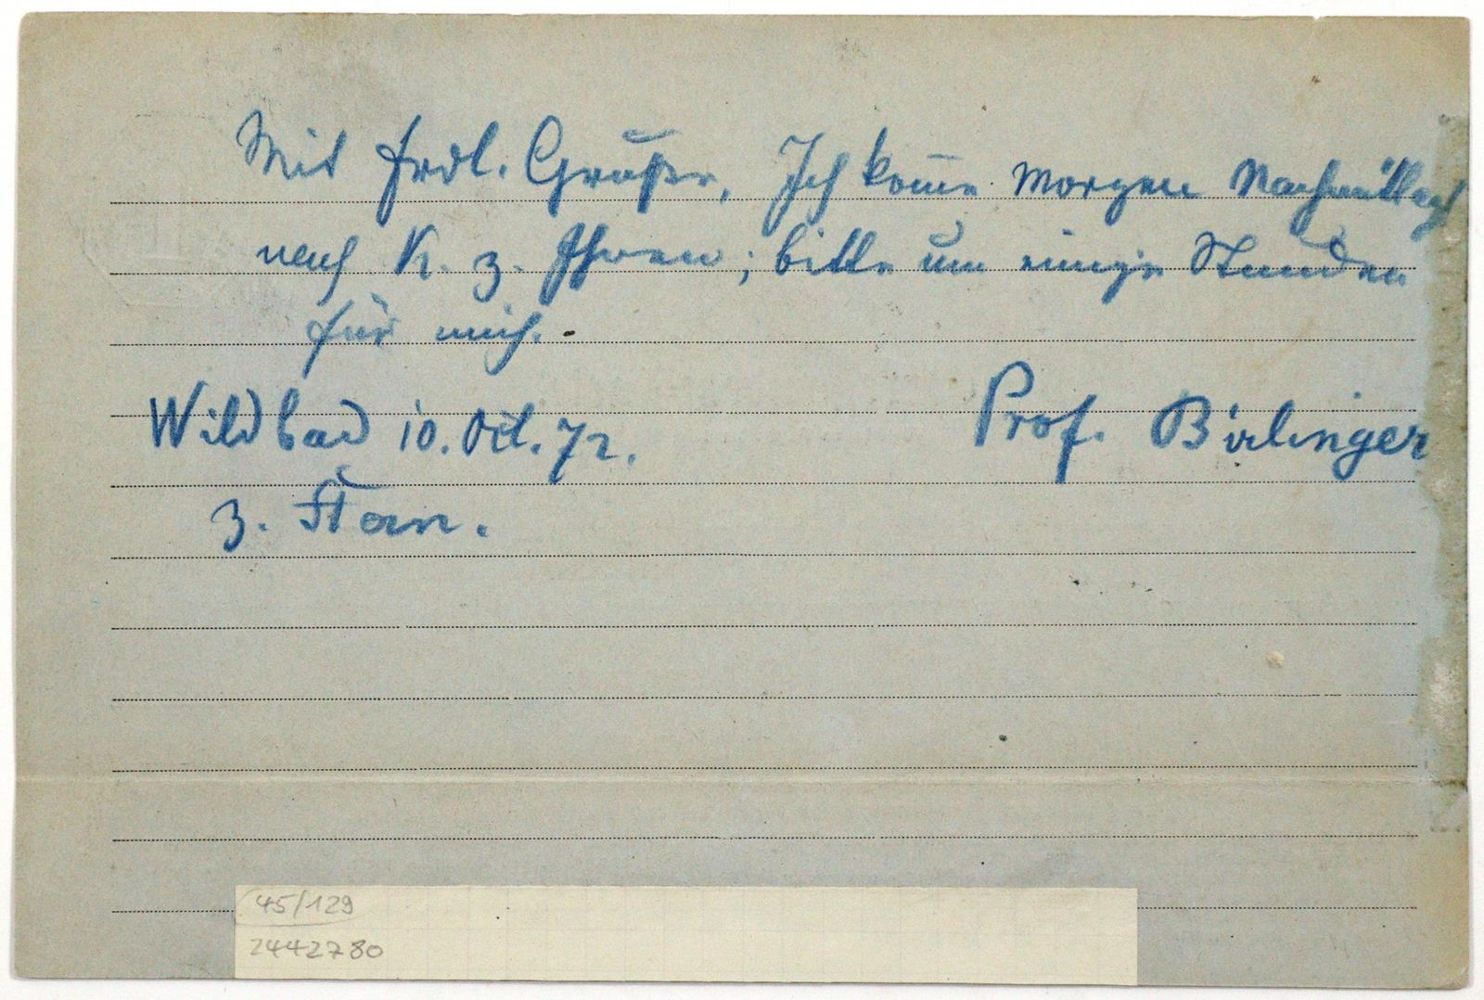 Mit frdl. Grüßen, Ich kom̅e morgen Nachmittags
nach K. z. Ihnen; bitte um einige Stunden
für mich.
Wildbad 10. Oct. 72. Prof. Birlinger
z.
45/129
2442780